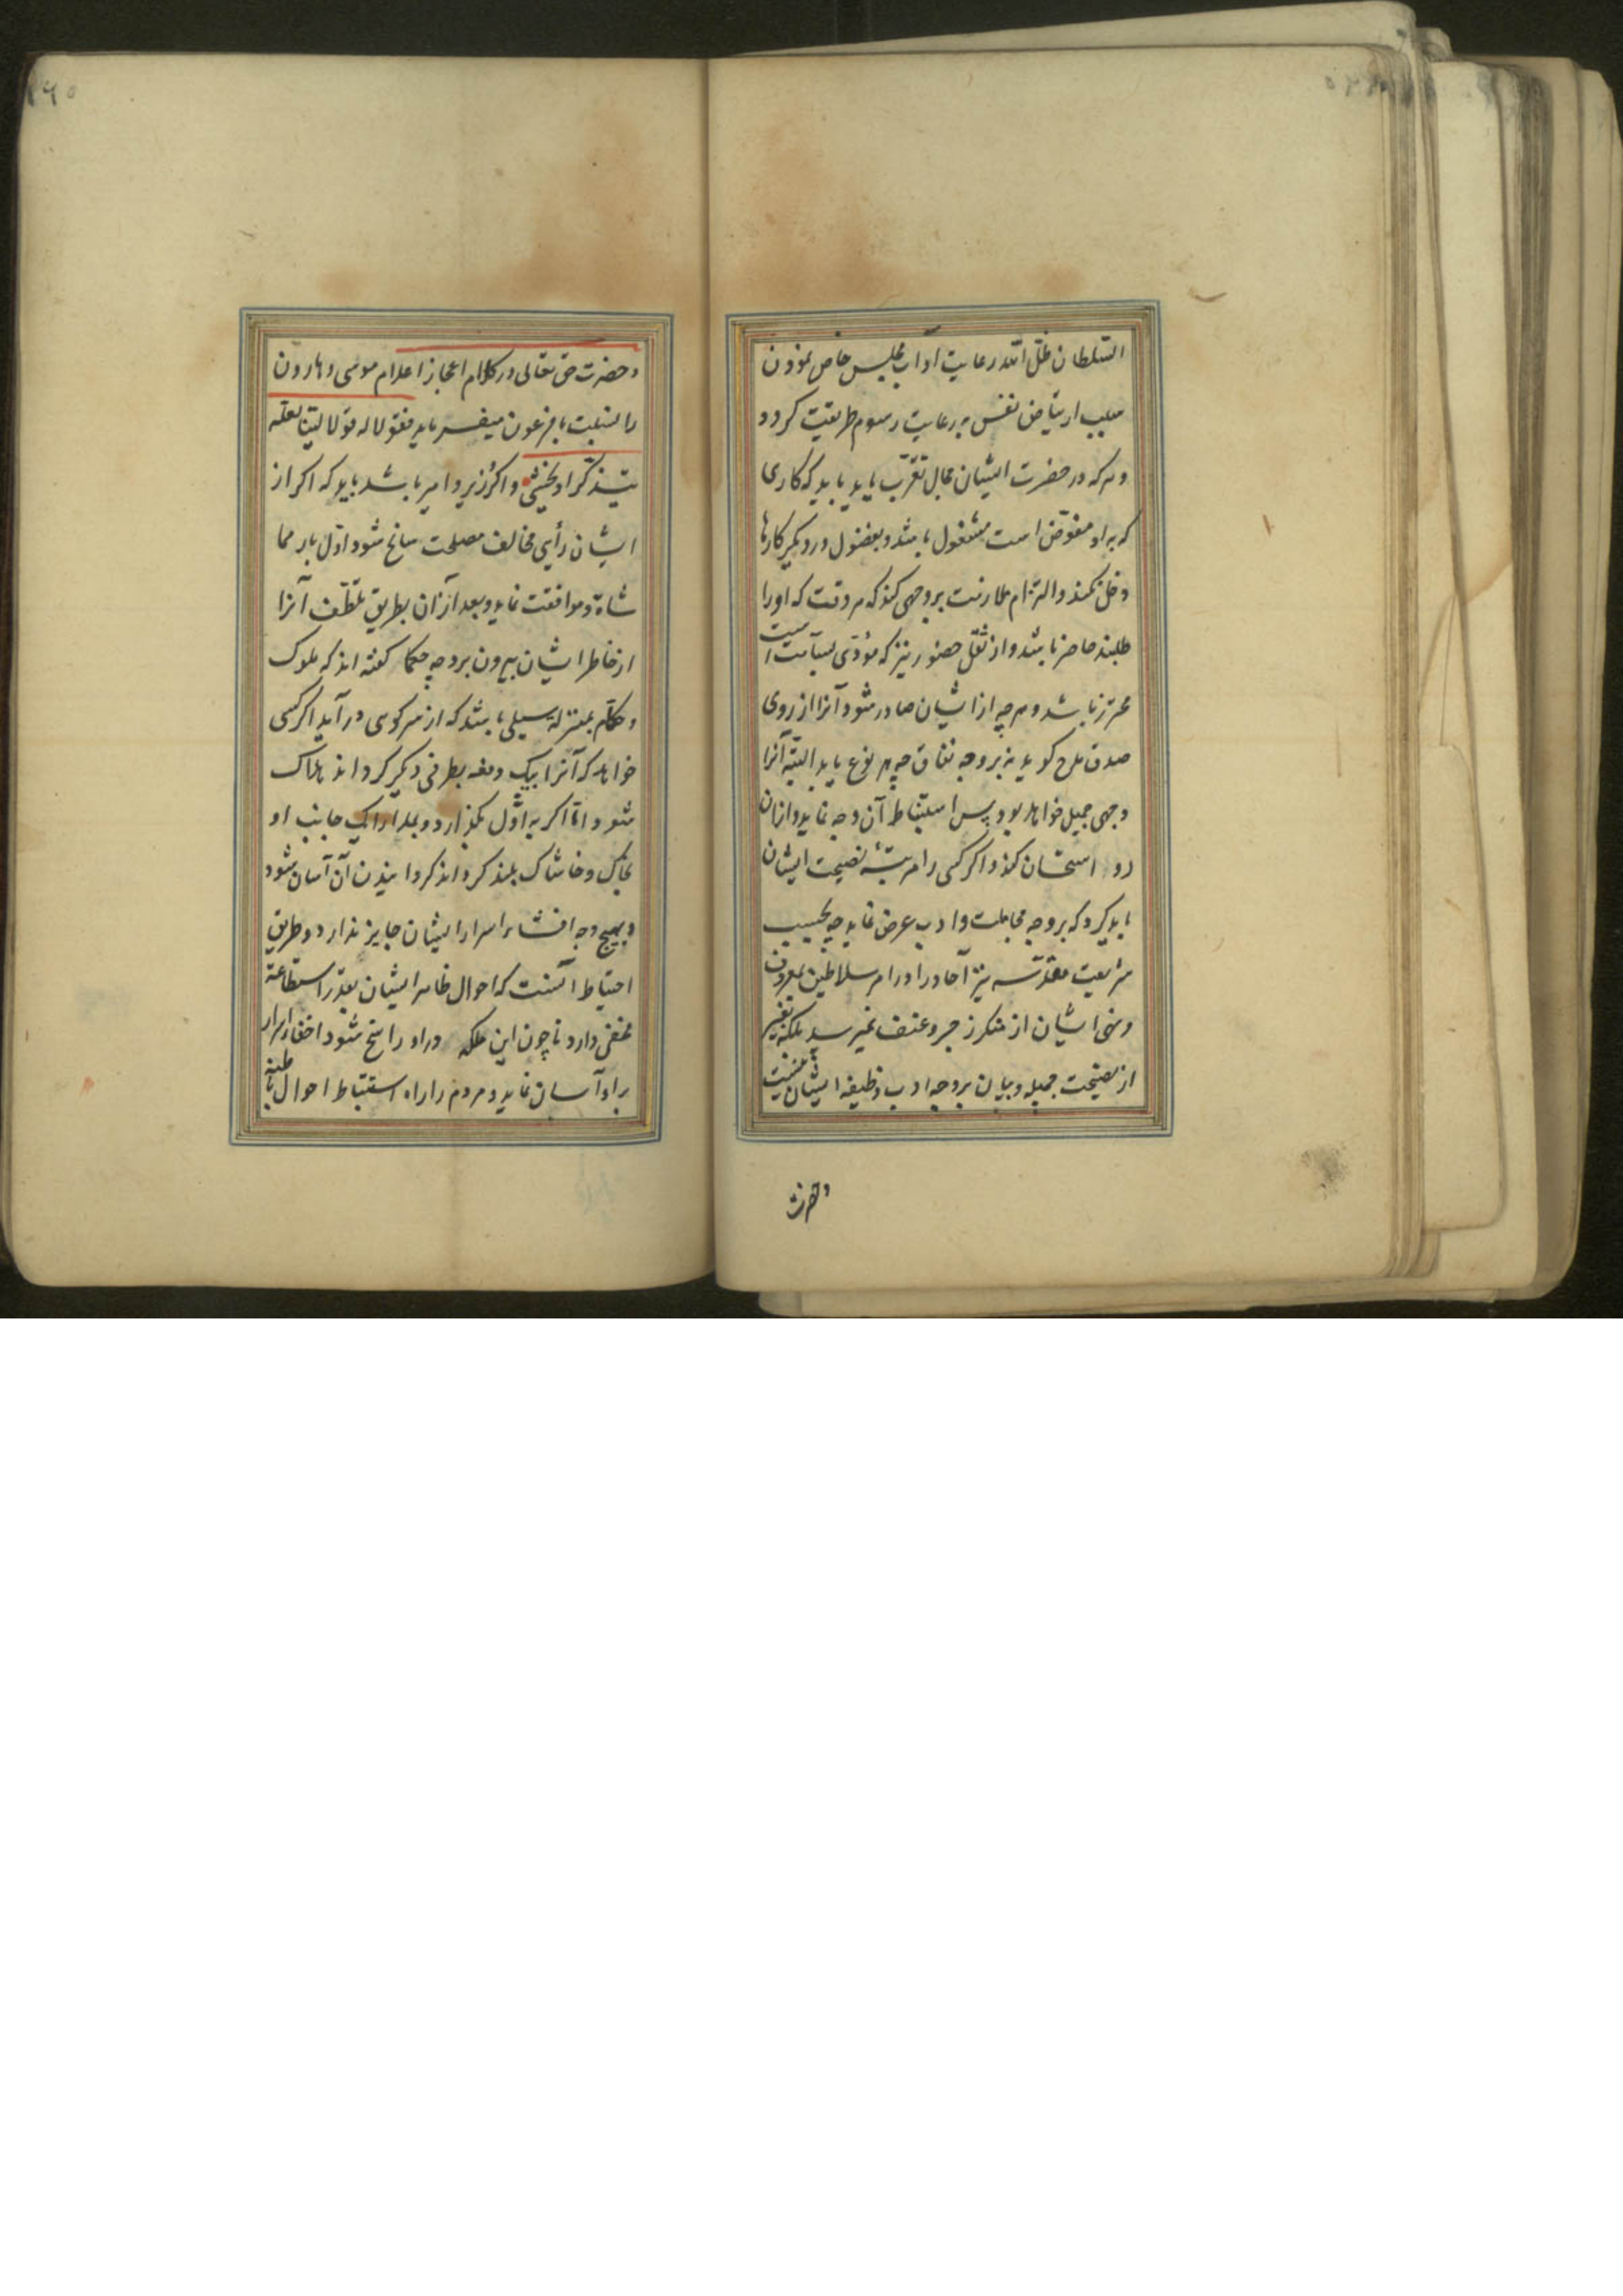 السّلطان ظلّ اللّه رعایت اداب مجلس خاص نمودن
سبب ارتیاض نفس به رعایت رسوم طریقت کردد
و هرکه در حضرت ایشان مجال تقرّب یابد باید که کاری
که به او مفوّض است مشغول باشد و بفضول در دیکر کارها
دخل نکند و التزام ملازمت بر وجهی کند که هر وقت که اورا
طلبند حاضر باشد و از ثقل حضور نیز که مؤدّی بسآمت است
محترز باشد و هر چه از ایشان صادر شود آنرا از روی
صدق مدح کوید نه بر وجه نفاق چه هر نوع باید البتّه آنرا
وجهی جمیل خواهد بود پس استنباط آن وجه نماید و ازان
رو استحسان کند و اکر کسی را مرتبهٔ نصیحت ایشان
باید کرد که بر وجه مجاملت و ادب عرض نماید چه بحسب
شریعت مقدّسه نیز آحاد را در امر سلاطین بمعروف
و نهی ایشان از منکر زجر و عنف نمیرسد بلکه بغیر
از نصیحت جمیله و بیان بر وجه ادب وظیفه ایشان نیست
و حضرت
و حضرت حق تعالی در کلام اعجاز اعلام موسی و هارون
را بنسبت با فرعون میفرماید فقولا له قولا لیّنا لعلّه
یتذکّر او یخشی و اکر وزیر و امیر باشد باید که اکر از
ایشان رأی مخالف مصلحت سانح شود اوّل بار مما
شاة و موافقت نماید و بعد از آن بطریق تلطّف آنرا
از خاطر ایشان بیرون برد چه حکما کفته اند که ملوک
و حکّام بمنزلهٔ سیلی باشند که از سر کوهی در آید اکر کسی
خواهد که آنرا بیک دفعه بطرفی دیکر کرداند هلاک
شود و امّا اکر به اوّل بکذارد و بمدارا یک جانب او
بخاک و خاشاک بلند کرداند کردانیدن آن آسان شود
و بهیچ وجه افشاء اسرار ایشان جایز ندارد و طریق
احتیاط آنست که احوال ظاهر ایشان بقدر استطاعة
مخفی دارد تا چون این ملکه در او راسخ شود اخفاء اسرار
بر او آسان نماید و مردم را راه استنباط احوال باطنه